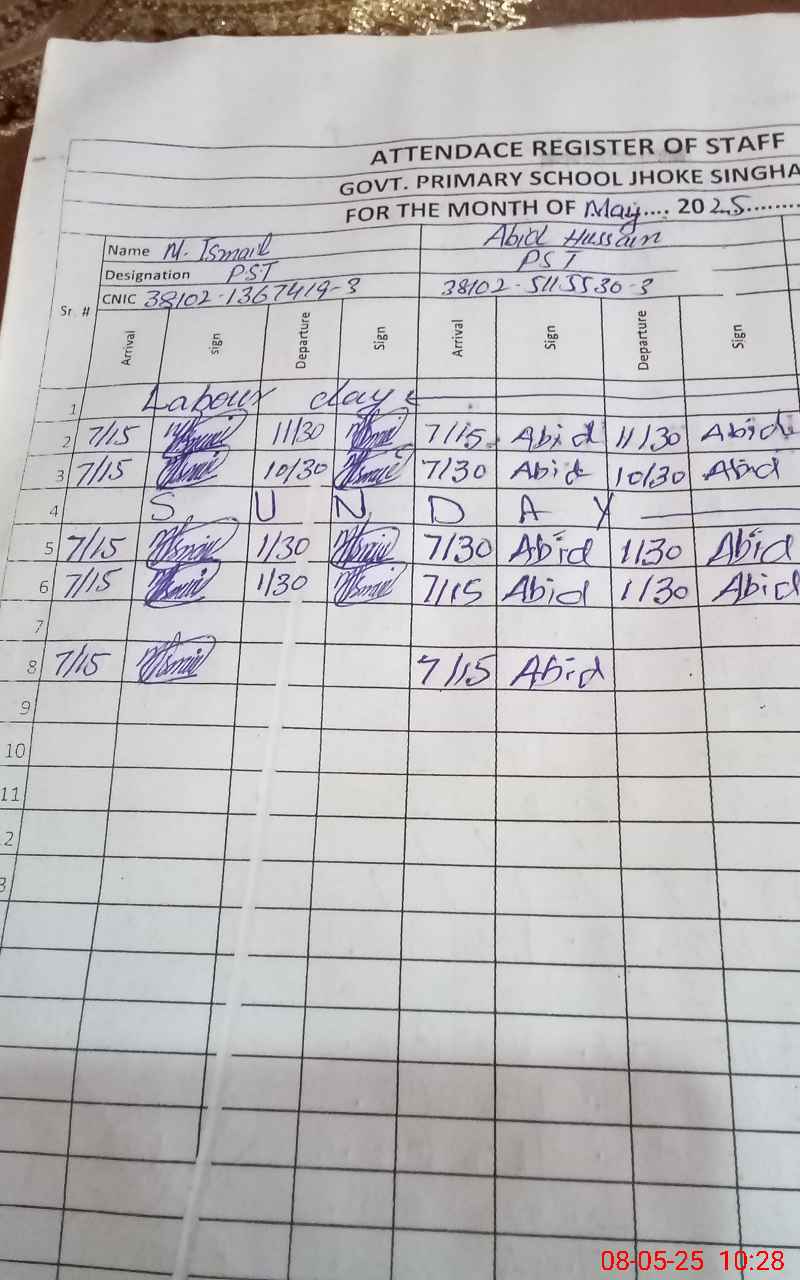 ATTENDACE REGISTER OF STAFF
GOVT. PRIMARY SCHOOL JHOKE SINGHA
FOR THE MONTH OF May.... 2025........
Sr. # Name M. Ismail Abid Hussain
Designation PST PST
CNIC 38102-1367419-3 38102-5115530-3
Arrival Sign Departure Sign Arrival Sign Departure Sign
1 Labour day
2 7/15 Ismail 11/30 Ismail 7/15 Abid 11/30 Abid
3 7/15 Ismail 10/30 Ismail 7/30 Abid 10/30 Abid
4 S U N D A Y
5 7/15 Ismail 1/30 Ismail 7/30 Abid 1/30 Abid
6 7/15 Ismail 1/30 Ismail 7/15 Abid 1/30 Abid
7
8 7/15 Ismail 7/15 Abid
9
10
11
2
3
08-05-25 10:28